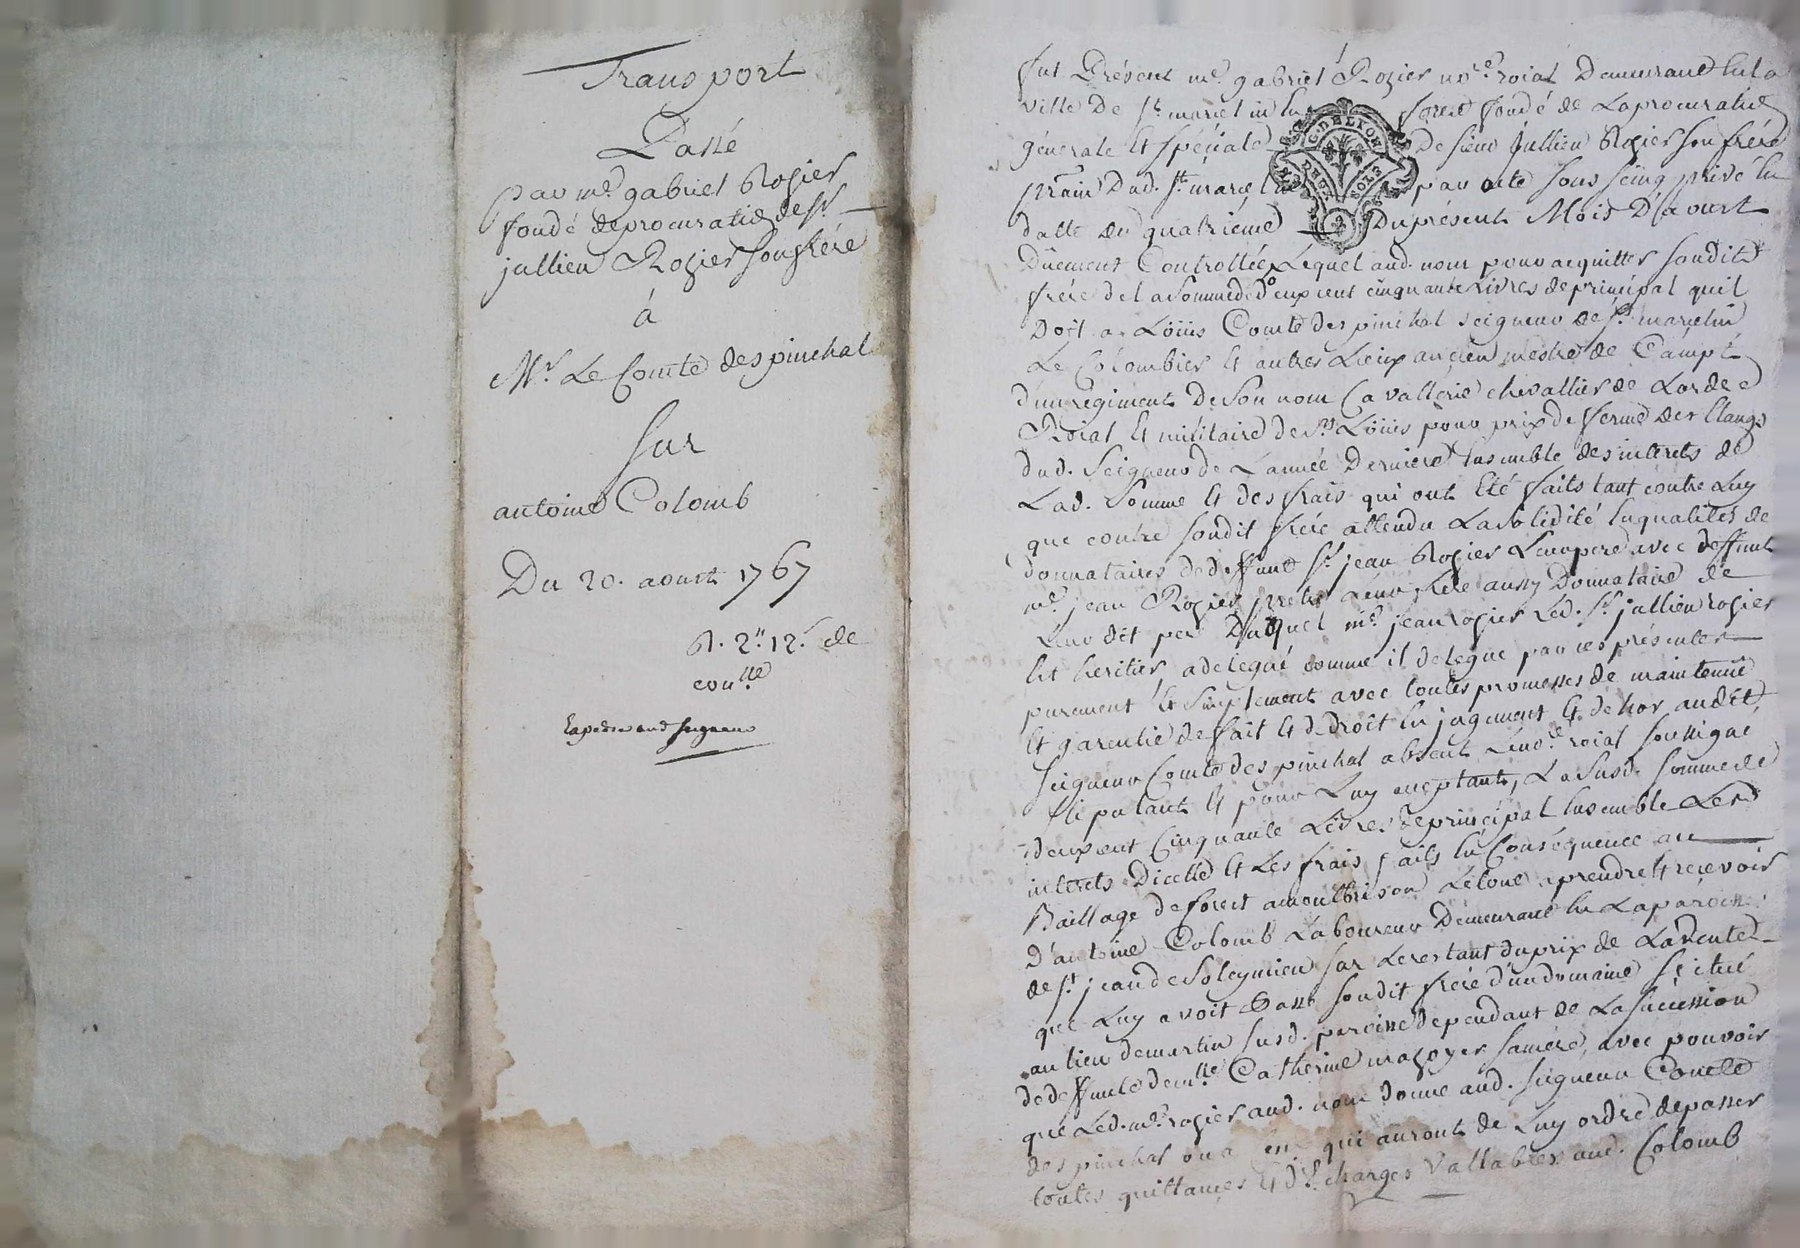 Transport
Passé
par me gabriel Rozier
fondé de procuratie de sr
jullien Rozier son frére
á
Mr. Le Comte despinchal
sur
antoine Colomb
Du 20. aoust 1767
R. 2" 12s de
conlle
Expedié aud seigneur
fut Présent me. gabriel Rozier nore. roial Demeurant en la
ville De st. marcel in forest fondé de La procuratie
générale et spéciale De sieur Jullien Rozier son frére
Dud. st. marcel par acte sous seing privé en
datte du quatriéme Du présent Mois D'aoust
Düement Controllée, Lequel aud. nom pour acquitter soudit
frére de La somme de deux cent cinquante Livres de principal quil
Doit a Löüis Comte despinchal seigneur de st. marcelin
Le Colombier et autres Lieux ancien mestre de Campt
d'un régiment De son nom Cavallerie chevallier de Lordre
Roial et militaire de st. Löüis pour prix de ferme des Etangs
dud. seigneur de Lannée Derniere Ensemble des interets de
Lad. somme et des frais qui ont Eté faits tant contre Luy
que contre soudit frére attendu La solidité En qualités de
donnataires de deffunt sr. jean Rozier Leur pere avec deffunt
me. jean Rozier prêtre Leur frére aussy Donnataire de
Leur dit pere Duquel me. jean rozier Led. sr. jullien rozier
Est heritier, a delegué comme il delegue par ces présentes
purement et simplement avec toutes promesses de maintenüe
et garentie de fait et de Droit En jugement et dehor audit
seigneur Comte despinchal absent Le nore. roial soussigné
stipulant et pour Luy acceptant, La susd. somme de
deux cent Cinquante Livres de principal Ensemble Les
interets Dicelle et Les frais faits En Conséquence au
Baillage de forest a montbrison Letout a prendre et recevoir
D'antoine Colomb Laboureur Demeurant En La paroisse
de st. jean de Soleymieu sur Le restant du prix de La Vente
que Luy avoit Passé soudit frére d'un domaine scitué
au lieu de martin susd. paroisse dependant de La succession
de deffunte demlle. Catherine mazoyer sa mére, avec pouvoir
que Led. me. rozier aud. nom donne aud. seigneur Comte
despinchal ou a qui auront de Luy ordre de passer
toutes quittances et décharges Vallables aud. Colomb